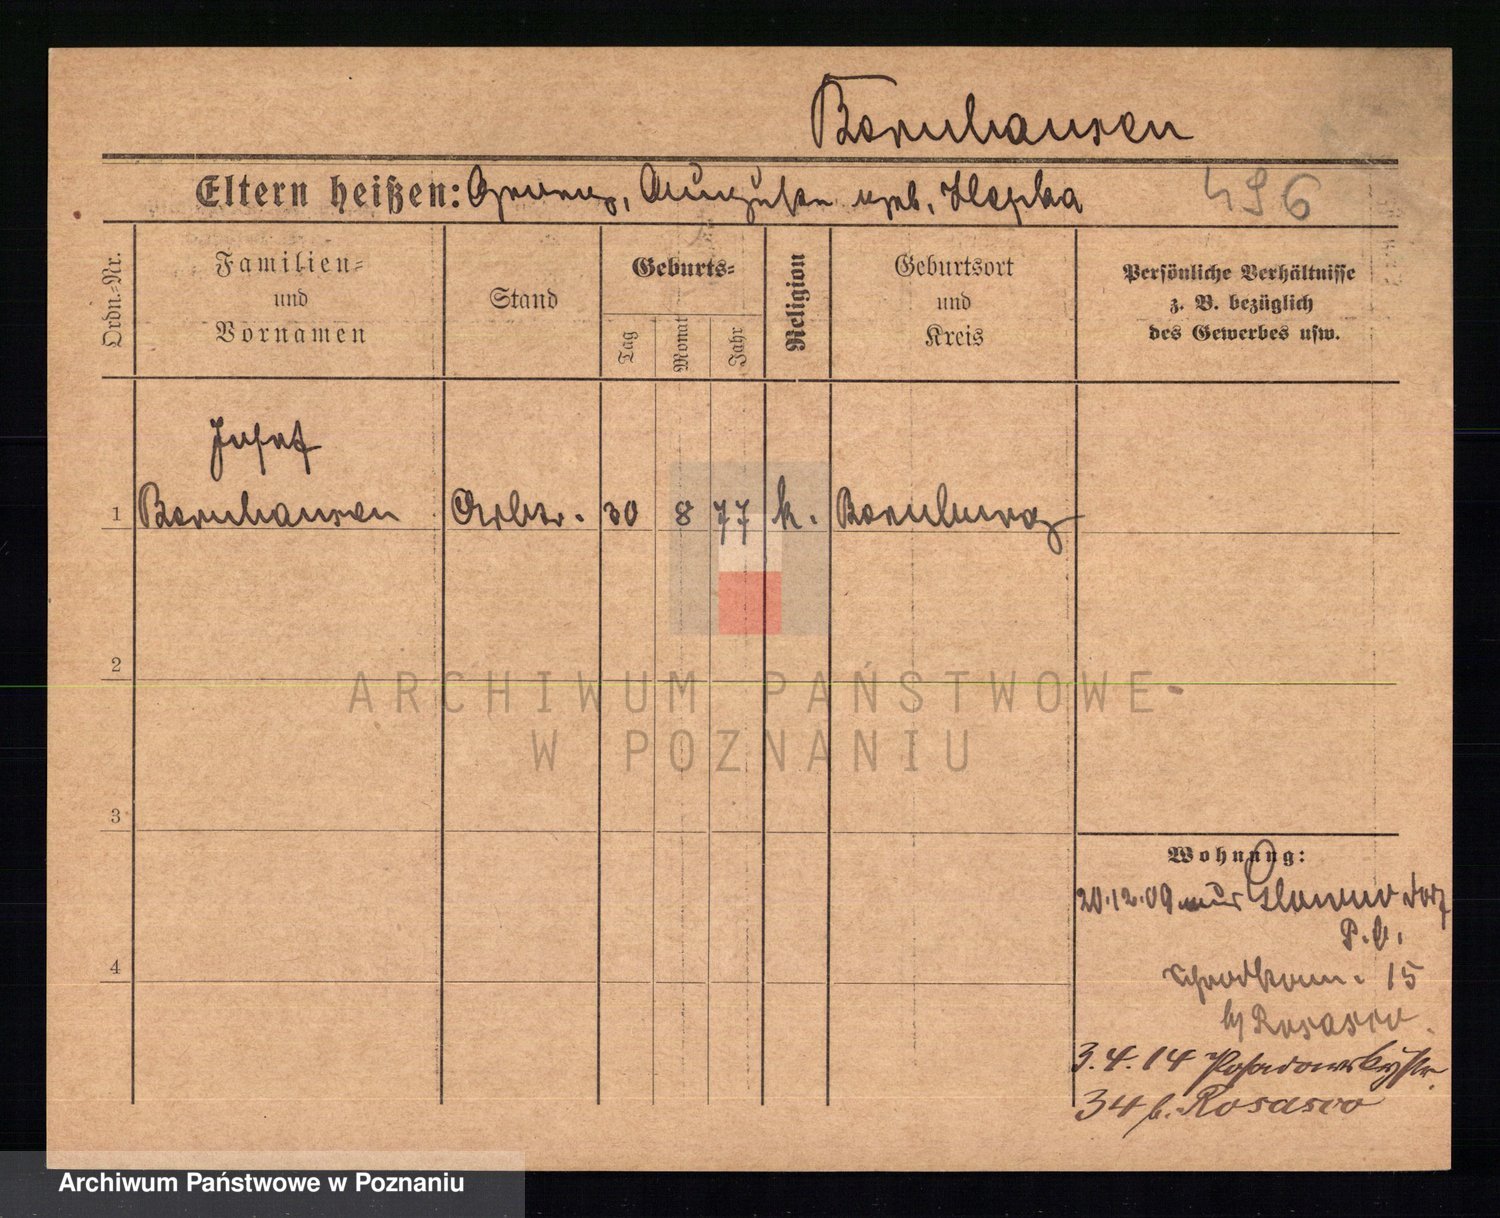 Bornhausen
Eltern heißen: Georg, Auguste geb.
496
Ordn.-Nr.
Familien-
und
Vornamen
Stand
Geburts-
Tag
Monat
Jahr
Religion
Geburtsort
und
Kreis
Persönliche Verhältnisse
z. B. bezüglich
des Gewerbes usw.
Josef
1 Bornhausen Arbtr. 30 8 77 k. Bornburg
2
3
4
ARCHIWUM PAŃSTWOWE
W POZNANIU
Wohnung:
20.12.09 aus
P. b.
15
b/ Rosasco
3.4.14 Posadowskystr.
34 b. Rosasco
Archiwum Państwowe w Poznaniu